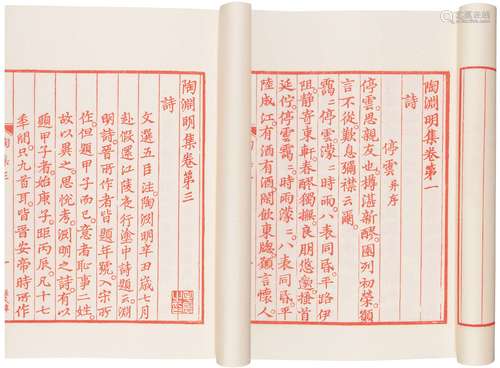 陶淵明集卷第一
詩
停雲 并序
停雲。思親友也。罇湛新醪。園列初榮。願
言不從。歎息彌襟云爾。
靄〻停雲。濛〻時雨。八表同昏。平路伊
阻。靜寄東軒。春醪獨撫。良朋悠邈。搔首
延佇。停雲靄〻。時雨濛〻。八表同昏。平
陸成江。有酒有酒。閒飲東牎。願言懷人
陶淵明集卷第三
詩
文選五臣注。陶淵明辛丑歲七月
赴假還江陵夜行塗中詩題云。淵
明詩。晉所作者。皆題年號。入宋所
作。但題甲子而已。意者恥事二姓。
故以異之。思悅考淵明之詩。有以
題甲子者。始庚子。距丙辰。凡十七
年間。只九首耳。皆晉安帝時所作